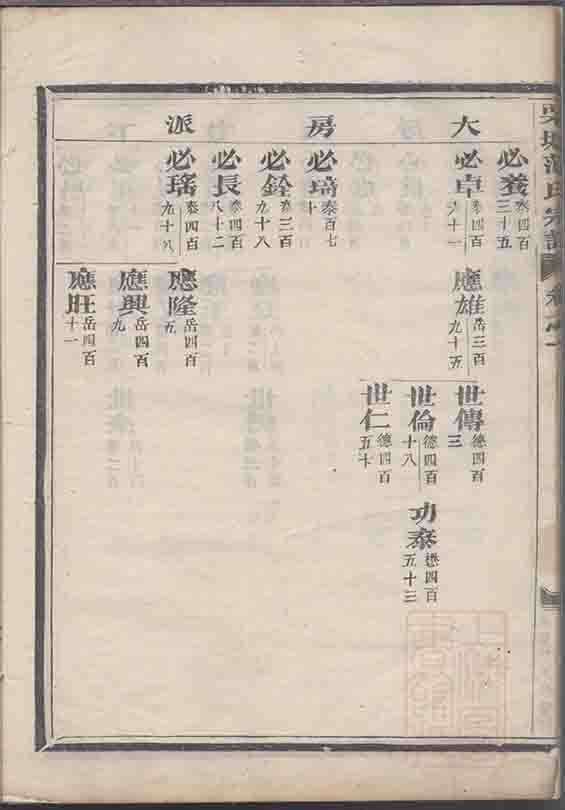 大房派
必養 泰四百三十五
必卓 泰四百六十一
必 泰百七十
必銓 泰三百九十八
必長 泰四百八十二
必瑤 泰四百九十八
應雄 岳三百九十五
應隆 岳四百五
應興 岳四百九
應旺 岳四百十一
世傳 德四百三
世倫 德四百十八
世仁 德四百五十
功泰 懋四百五十三
氏宗譜 卷之十